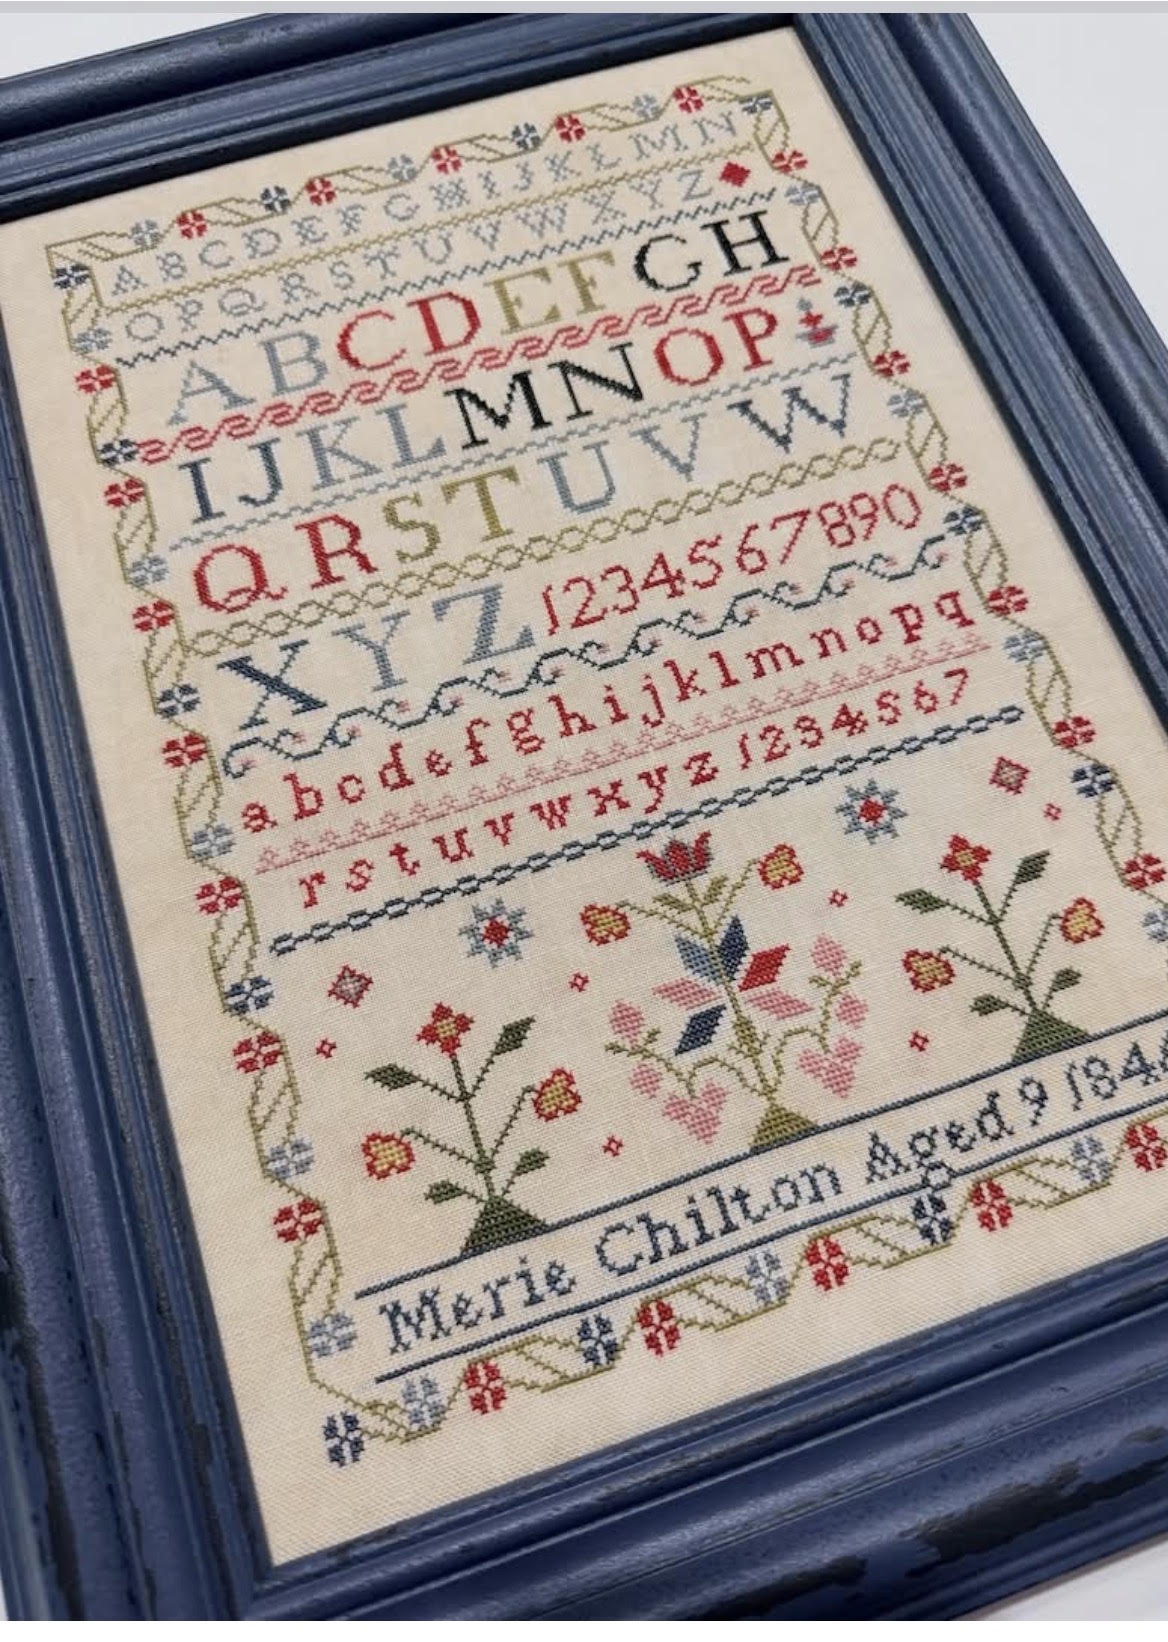 ABCDEFGHIJKLMN
OPQRSTUVWXYZ
ABCDEFGH
IJKLMNOP
QRSTUVW
XYZ 1234567890
abcdefghijklmnopq
rstuvwxyz 1234567
Merie Chilton Aged 9